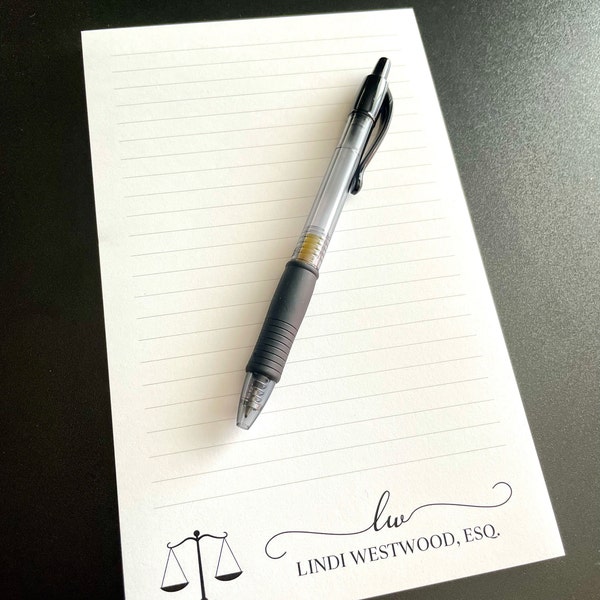 lw
LINDI WESTWOOD, ESQ.